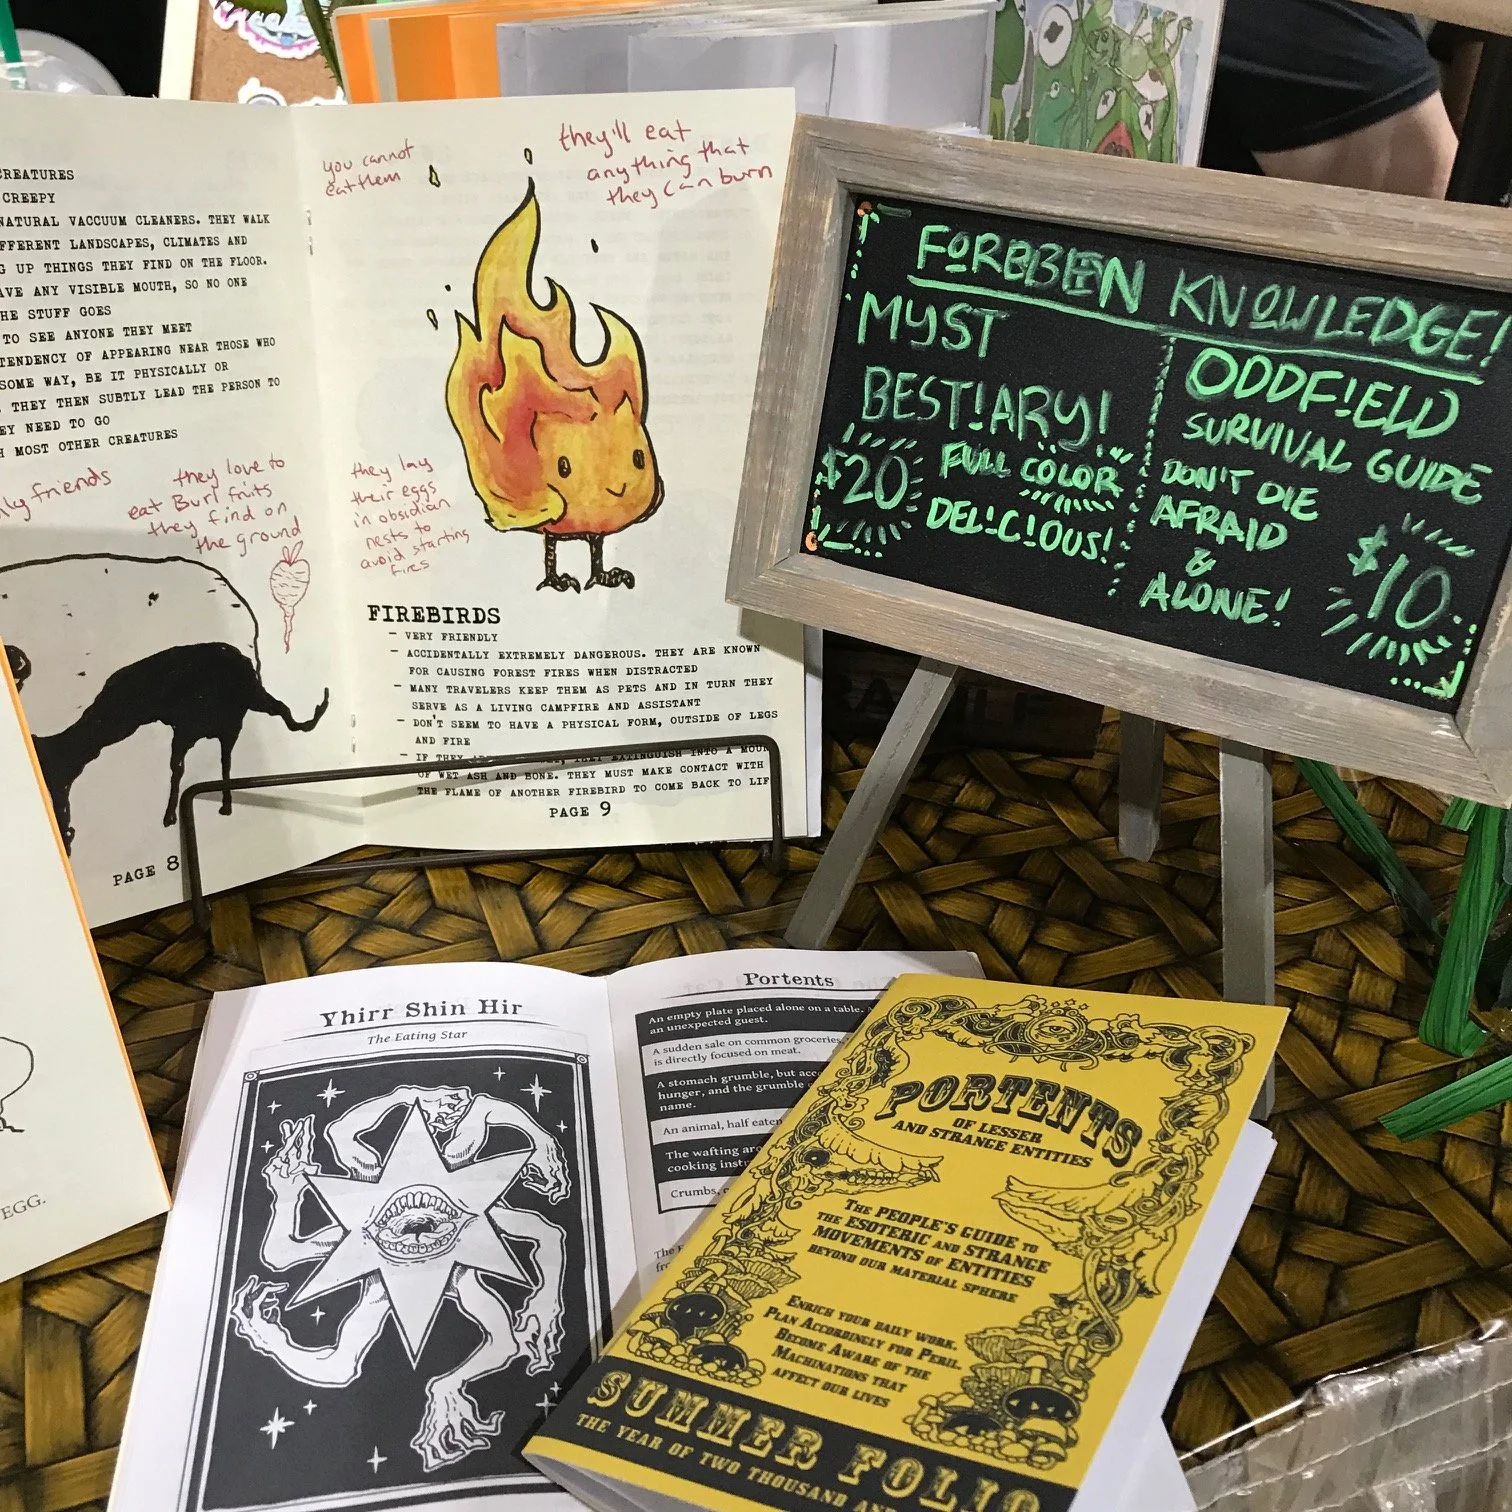 CREATURES
CREEPY
NATURAL VACCUUM CLEANERS. THEY WALK
LANDSCAPES, CLIMATES AND
UP THINGS THEY FIND ON THE FLOOR.
ANY VISIBLE MOUTH, SO NO ONE
STUFF GOES
TO SEE ANYONE THEY MEET
TENDENCY OF APPEARING NEAR THOSE WHO
SOME WAY, BE IT PHYSICALLY OR
THEY THEN SUBTLY LEAD THE PERSON TO
NEED TO GO
MOST OTHER CREATURES
friends
they love to
eat Burl fruits
they find on
the ground
PAGE 8
you cannot
eat them
they'll eat
anything that
they can burn
they lay
their eggs
in obsidian
nests to
avoid starting
fires
FIREBIRDS
– VERY FRIENDLY
– ACCIDENTALLY EXTREMELY DANGEROUS. THEY ARE KNOWN
FOR CAUSING FOREST FIRES WHEN DISTRACTED
– MANY TRAVELERS KEEP THEM AS PETS AND IN TURN THEY
SERVE AS A LIVING CAMPFIRE AND ASSISTANT
– DON'T SEEM TO HAVE A PHYSICAL FORM, OUTSIDE OF LEGS
AND FIRE
– IF THEY EXTINGUISH INTO A
OF WET ASH AND BONE. THEY MUST MAKE CONTACT WITH
THE FLAME OF ANOTHER FIREBIRD TO COME BACK TO
PAGE 9
FORBBEN KNOWLEDGE!
MYST
BESTIARY!
$20
FULL COLOR
DELICIOUS!
ODDFIELD
SURVIVAL GUIDE
DON'T DIE
AFRAID
&
ALONE!
$10
EGG.
Yhirr Shin Hir
The Eating Star
Portents
An empty plate placed alone on a table.
an unexpected guest.
A sudden sale on common groceries
is directly focused on meat.
A stomach grumble, but
hunger, and the grumble
name.
An animal, half
The wafting
cooking
Crumbs,
The
PORTENTS
OF LESSER
AND STRANGE ENTITIES
THE PEOPLE'S GUIDE TO
THE ESOTERIC AND STRANGE
MOVEMENTS OF ENTITIES
BEYOND OUR MATERIAL SPHERE
ENRICH YOUR DAILY WORK.
PLAN ACCORDINGLY FOR PERIL.
BECOME AWARE OF THE
MACHINATIONS THAT
AFFECT OUR LIVES
SUMMER FOLIO
THE YEAR OF TWO THOUSAND